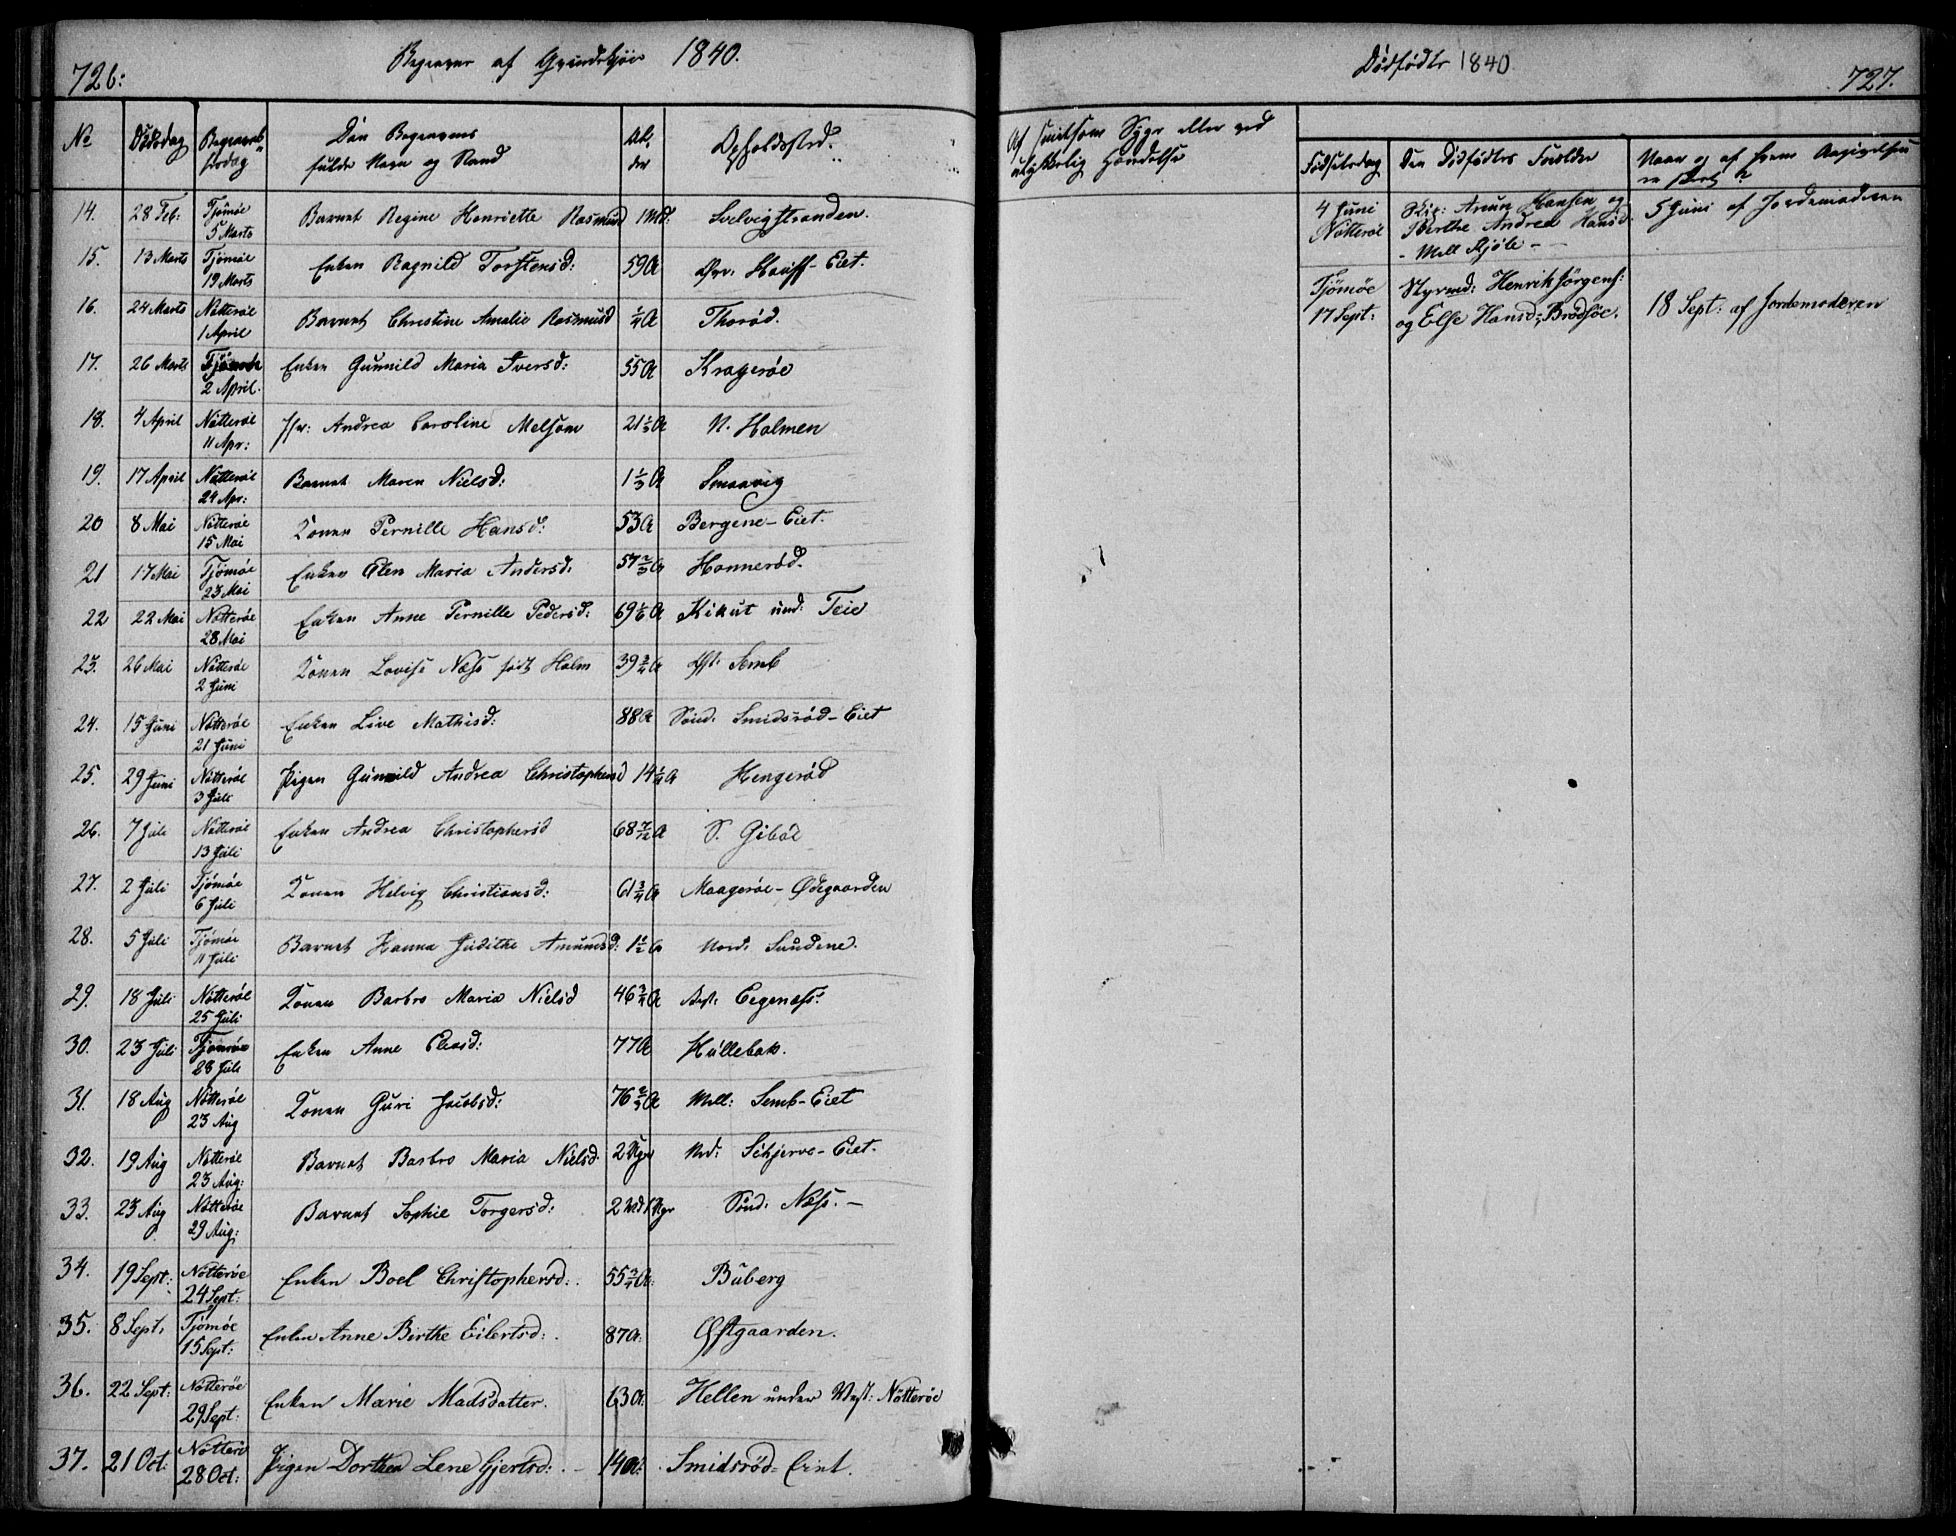 726:
Begravne af Qvindekjön 1840.
No Dödsdag Begravelsesdag Den Begravnes fulde Navn og Stand Alder Opholdssted.
14. 28 Feb: Tjömöe 5 Marts Barnet Regine Henriette Rasmusd 1 Md: Svelvigstranden.
15. 13 Marts Tjömöe 19 Marts Enken Ragnild Torstensd: 59 A Øvr: Hauff-Eiet.
16. 24 Marts Nötteröe 1 April Barnet Christine Amalie Rasmusd 1/4 A Thoröd.
17. 26 Marts Tjömöe 2 April. Enken Gunnild Maria Iversd: 55 A Krageröe
18. 4 April Nötteröe 11 Apr: Jfr: Andrea Caroline Melsom 21 1/2 A N. Holmen
19. 17 April Nötteröe 24 Apr: Barnet Maren Nielsd: 1 1/3 A Smaavig
20 8 Mai Nötteröe 15 Mai Konen Pernille Hansd: 53 A Bergene-Eiet.
21 17 Mai Tjömöe 23 Mai Enken Elen Maria Andersd: 57 2/3 A Honneröd.
22 22 Mai Nötteröe 28 Mai Enken Anne Pernille Pedersd: 69 1/6 A Kikut und: Teie
23. 26 Mai Nötteröe 2 Juni Konen Lovise Næss født Holm 39 3/4 A Øst: Semb
24. 15 Juni Nötteröe 21 Juni Enken Live Mathisd: 88 A Sönd: Smidsröd-Eiet
25. 29 Juni Nötteröe 3 Juli Pigen Gunnild Andrea Christophersd 14 1/2 A Hengeröd
26. 7 Juli Nötteröe 13 Juli Enken Andrea Christophersd 68 7/12 A S. Giböe
27. 2 Juli Tjömöe 6 Juli Konen Helvig Christiansd: 61 3/4 A Maageröe-Ødegaarden
28. 5 Juli Tjömöe 11 Juli Barnet Hanna Judithe Amundsd: 1 1/2 A Nord: Sundene.
29. 18 Juli Nötteröe 25 Juli Konen Barbro Maria Nielsd 46 3/4 A Vest: Eegenæss:
30. 23 Juli Tjömöe 28 Juli Enken Anne Eliasd: 77 A Hullebak.
31. 18 Aug Nötteröe 23 Aug Konen Guri Jacobsd: 76 2/3 A Mell: Semb-Eiet
32. 19 Aug Nötteröe 23 Aug: Barnet Barbro Maria Nielsd. 2 Uger Nrd: Skjerve-Eiet.
33. 23 Aug Nötteröe 29 Aug: Barnet Sophie Torgersd: Sönd: Næss.-
34. 19 Sept: Nötteröe 24 Sept: Enken Boel Christophersd: 55 3/4 A: Buberg
35. 8 Sept, Tjömöe 15 Sept: Enken Anne Birthe Eilertsd: 87 A: Østgaarden.
36. 22 Sept: Nötteröe 29 Sept: Enken Marie Madsdatter. 63 A: Hellen under Vest: Nötteröe
37. 21 Oct: Nötteröe 28 Oct: Pigen Dorthea Lene Gjertsd: 14 A: Smidsröd-Eiet.
Dödfödte 1840
727.
Af smitsom Syge eller ved ulykkelig Hændelse
Födselsdag Den Dödfödtes Forældre Naar og af hvem Angivelsen er skeet?
4 Juni Nötteröe Skip: Arnun Hansen og Berthe Andrea Hansd: - Mell Kjöle - 5 Juni af Jordemoderen
Tjömöe 17 Sept: Styrmd: Henrik Jörgens: og Else Hansd: Brodsöe. 18 Sept: af Jordemoderen